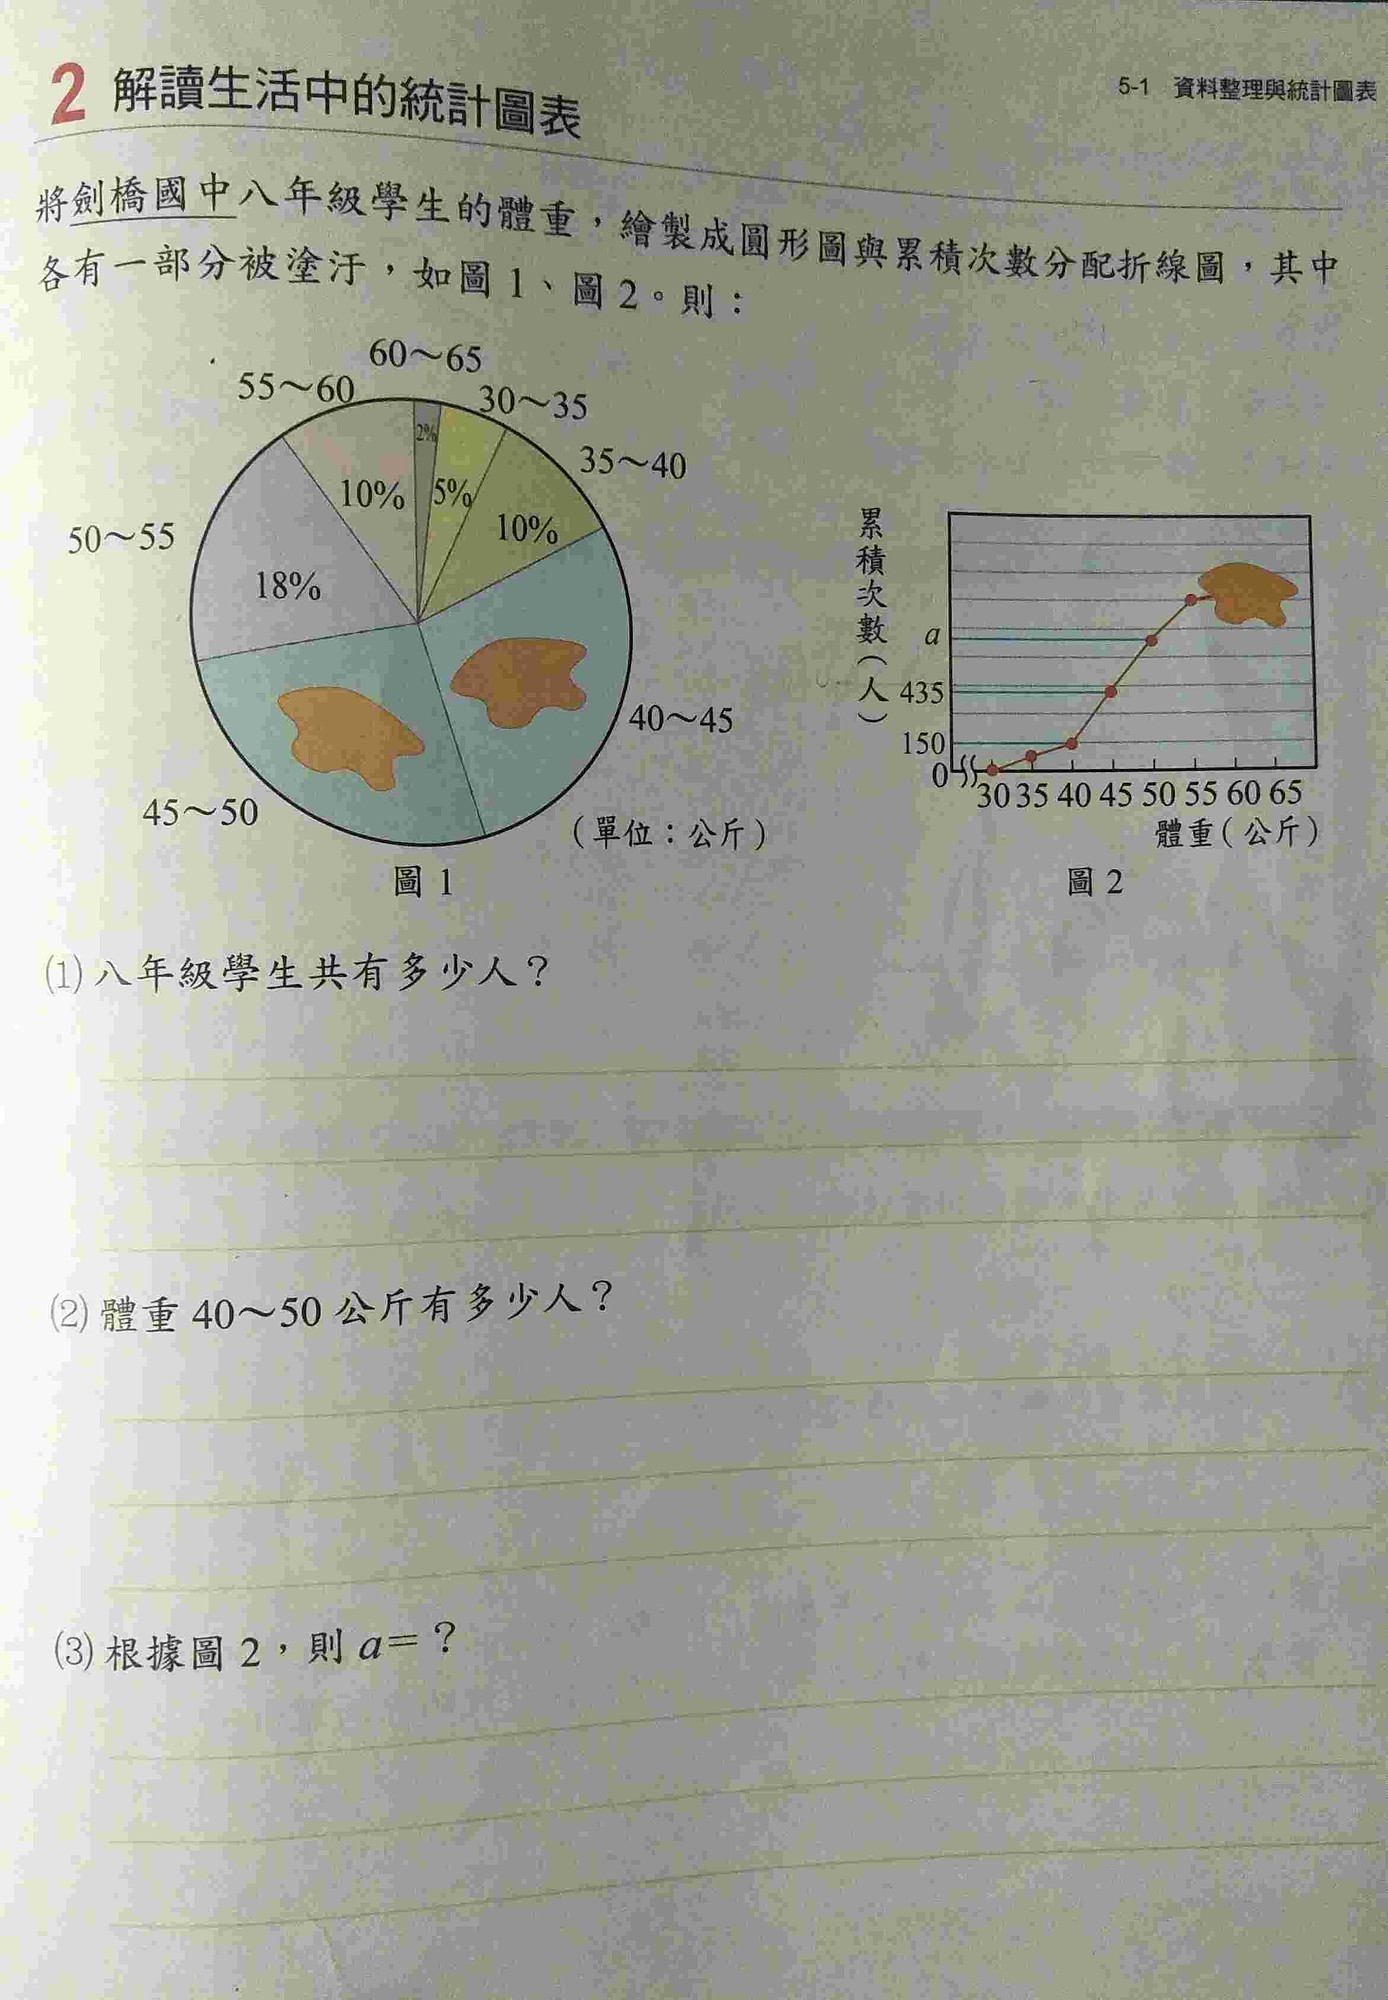 5-1 資料整理與統計圖表
2 解讀生活中的統計圖表
將劍橋國中八年級學生的體重，繪製成圓形圖與累積次數分配折線圖，其中
各有一部分被塗汙，如圖1、圖2。則：
60～65
55～60
30～35
35～40
2%
10%
5%
10%
50～55
18%
40～45
45～50
(單位：公斤)
圖1
累積次數(人)
a
435
150
0
30 35 40 45 50 55 60 65
體重(公斤)
圖2
(1) 八年級學生共有多少人？
(2) 體重40～50公斤有多少人？
(3) 根據圖2，則a=？